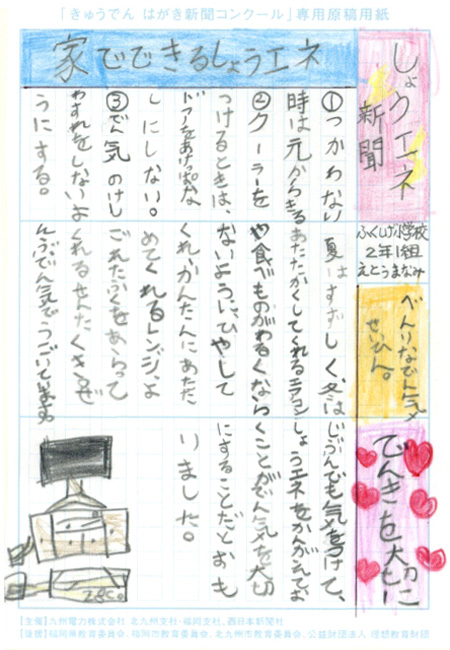 「きゅうでん はがき新聞コンクール」専用原稿用紙
しょウエネ
新聞
家でできるしょうエネ
①つかわない
時は元からきる
②クーラーを
つけるときは、
ドアをあけっぱな
しにしない。
③でん気のけし
わすれをしないよ
うにする。
ふくしげ小学校
2年1組
えとうまなみ
べんりなでん気
せいひん。
夏はすずしく冬は
あたたかくしてくれるエアコン
や食べものがわるくなら
ないように、ひやして
くれ、かんたんにあたた
めてくれるレンジ、よ
ごれたふくをあらって
くれるせんたくき。ぜ
んぶ、でん気でうごいています。
でんきを大切に
じぶんでも気をつけて、
しょうエネをかんがえてい
くことがでん気を大切
にすることだとおも
いました。
28℃
【主催】九州電力株式会社 北九州支社・福岡支社、西日本新聞社
【後援】福岡県教育委員会、福岡市教育委員会、北九州市教育委員会、公益財団法人 理想教育財団